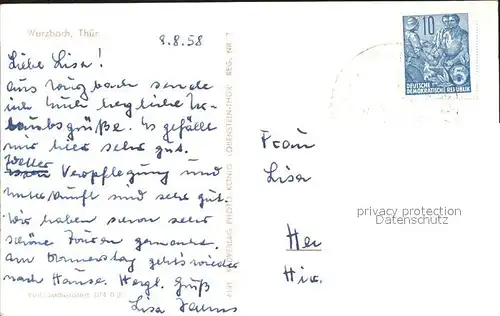 Wurzbach, Thür.
8.8.58
Liebe Lisa!
Aus Wurzbach sende
ich Euch herzliche Ur-
laubsgrüße. Es gefällt
mir hier sehr gut.
Wetter
Verpflegung und
Unterkunft sind sehr gut.
Wir haben schon sehr
schöne Touren gemacht.
Am Donnerstag geht's wieder
nach Hause. Herzl. Gruß
Lisa
10
DEUTSCHE
DEMOKRATISCHE REPUBLIK
5
Frau
Lisa
privacy protection
Datenschutz